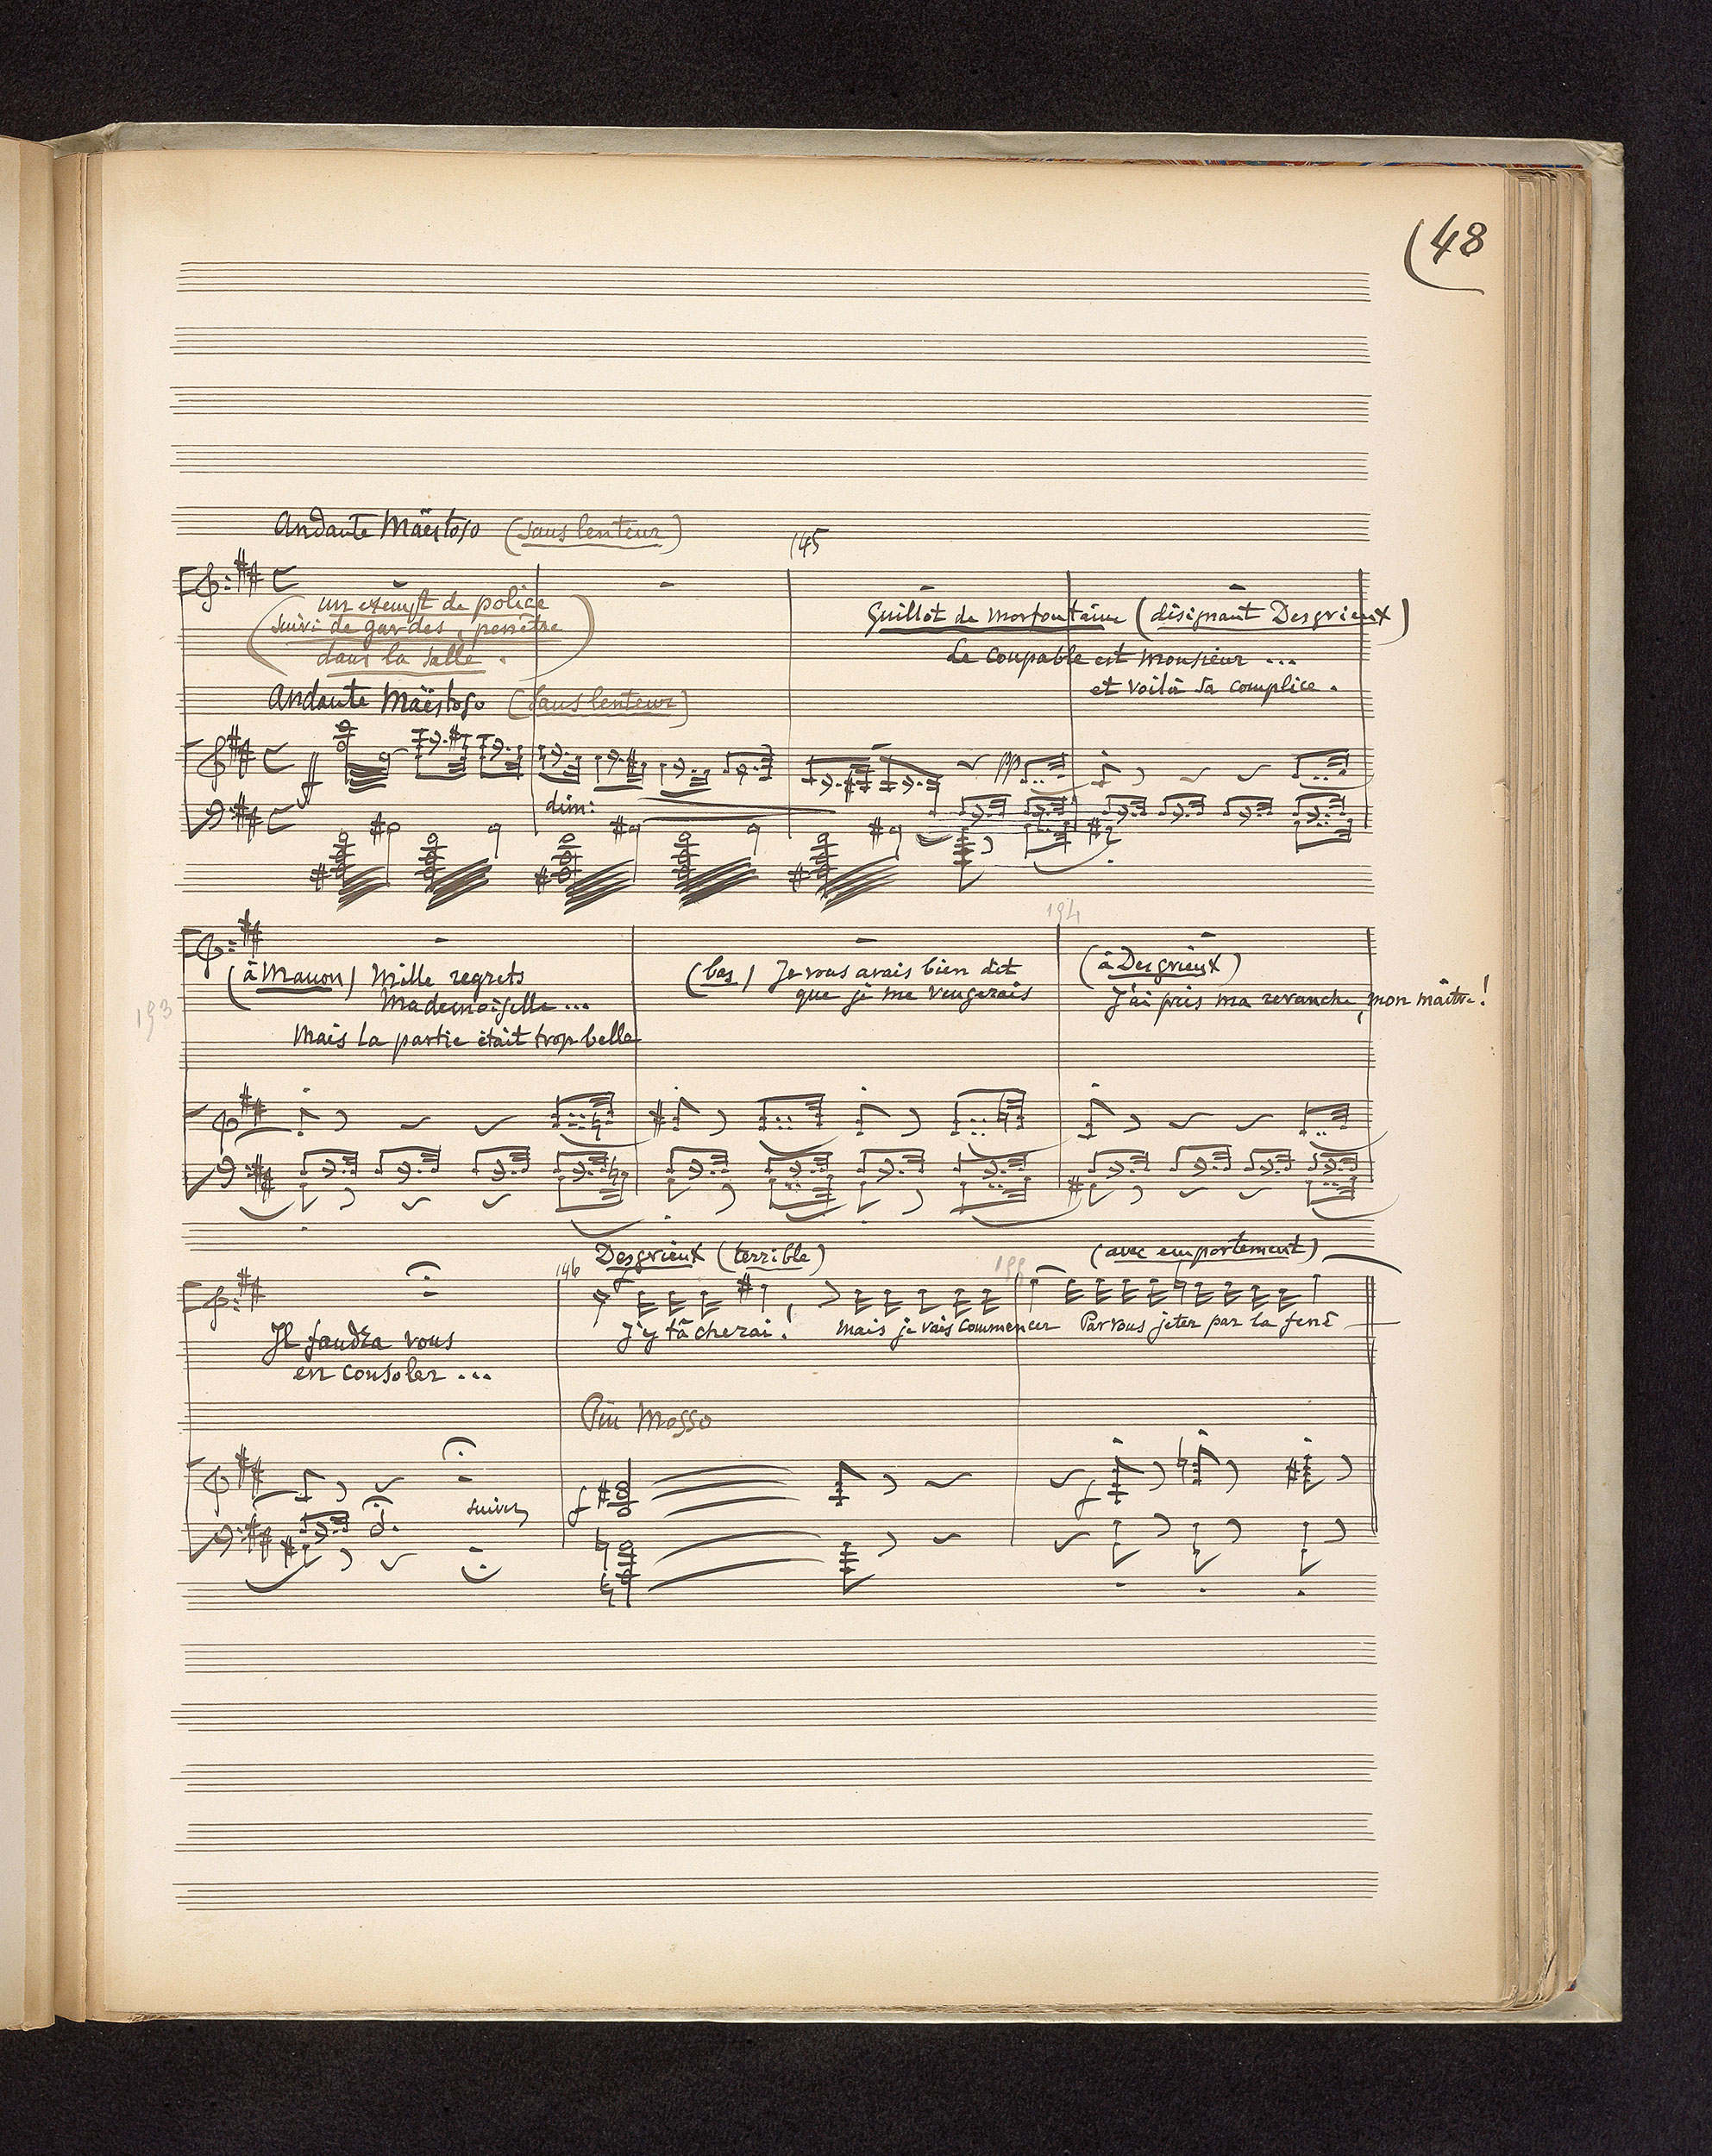 (48
Andante Maëstoso (sans lenteur)
145
un exempt de police
suivi de gardes, penètre
dans la salle.
Guillot de Morfontaine (désignant Desgrieux)
Le coupable est monsieur ...
et voilà sa complice.
Andante Maëstoso (sans lenteur)
ff
pp
dim:
194
(à Manon) Mille regrets
Mademoiselle ...
Mais la partie était trop belle
(bas) Je vous avais bien dit
que je me vengerais
(à Desgrieux)
J'ai pris ma revanche, mon maître!
193
Desgrieux (terrible)
(avec emportement)
146
195
Il faudra vous
en consoler ...
f
J'y tâcherai! Mais je vais commencer Par vous jeter par la fenê
Piu Mosso
suivez
f
f